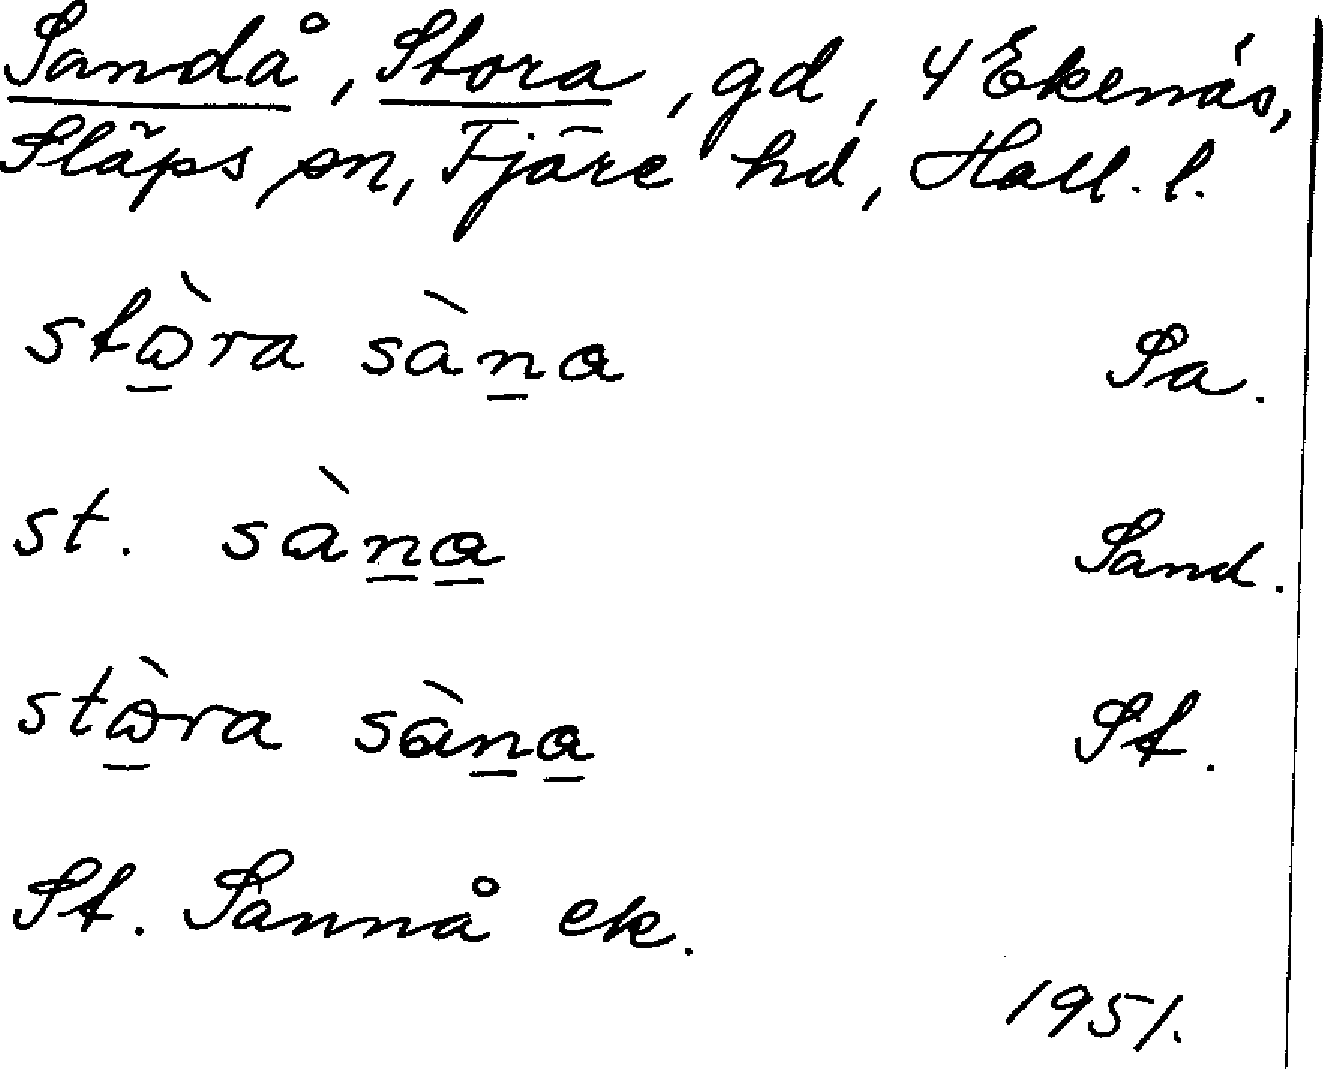 Sandå, Stora, gd, 4 Ekenäs,
Släps sn, Fjäre hd, Hall. l.
stὼ̱ra sàṉa Sa.
st. sàṉa̱ Sand.
stὼ̱ra sàṉa̱ St.
St. Sannå ek.
1951.